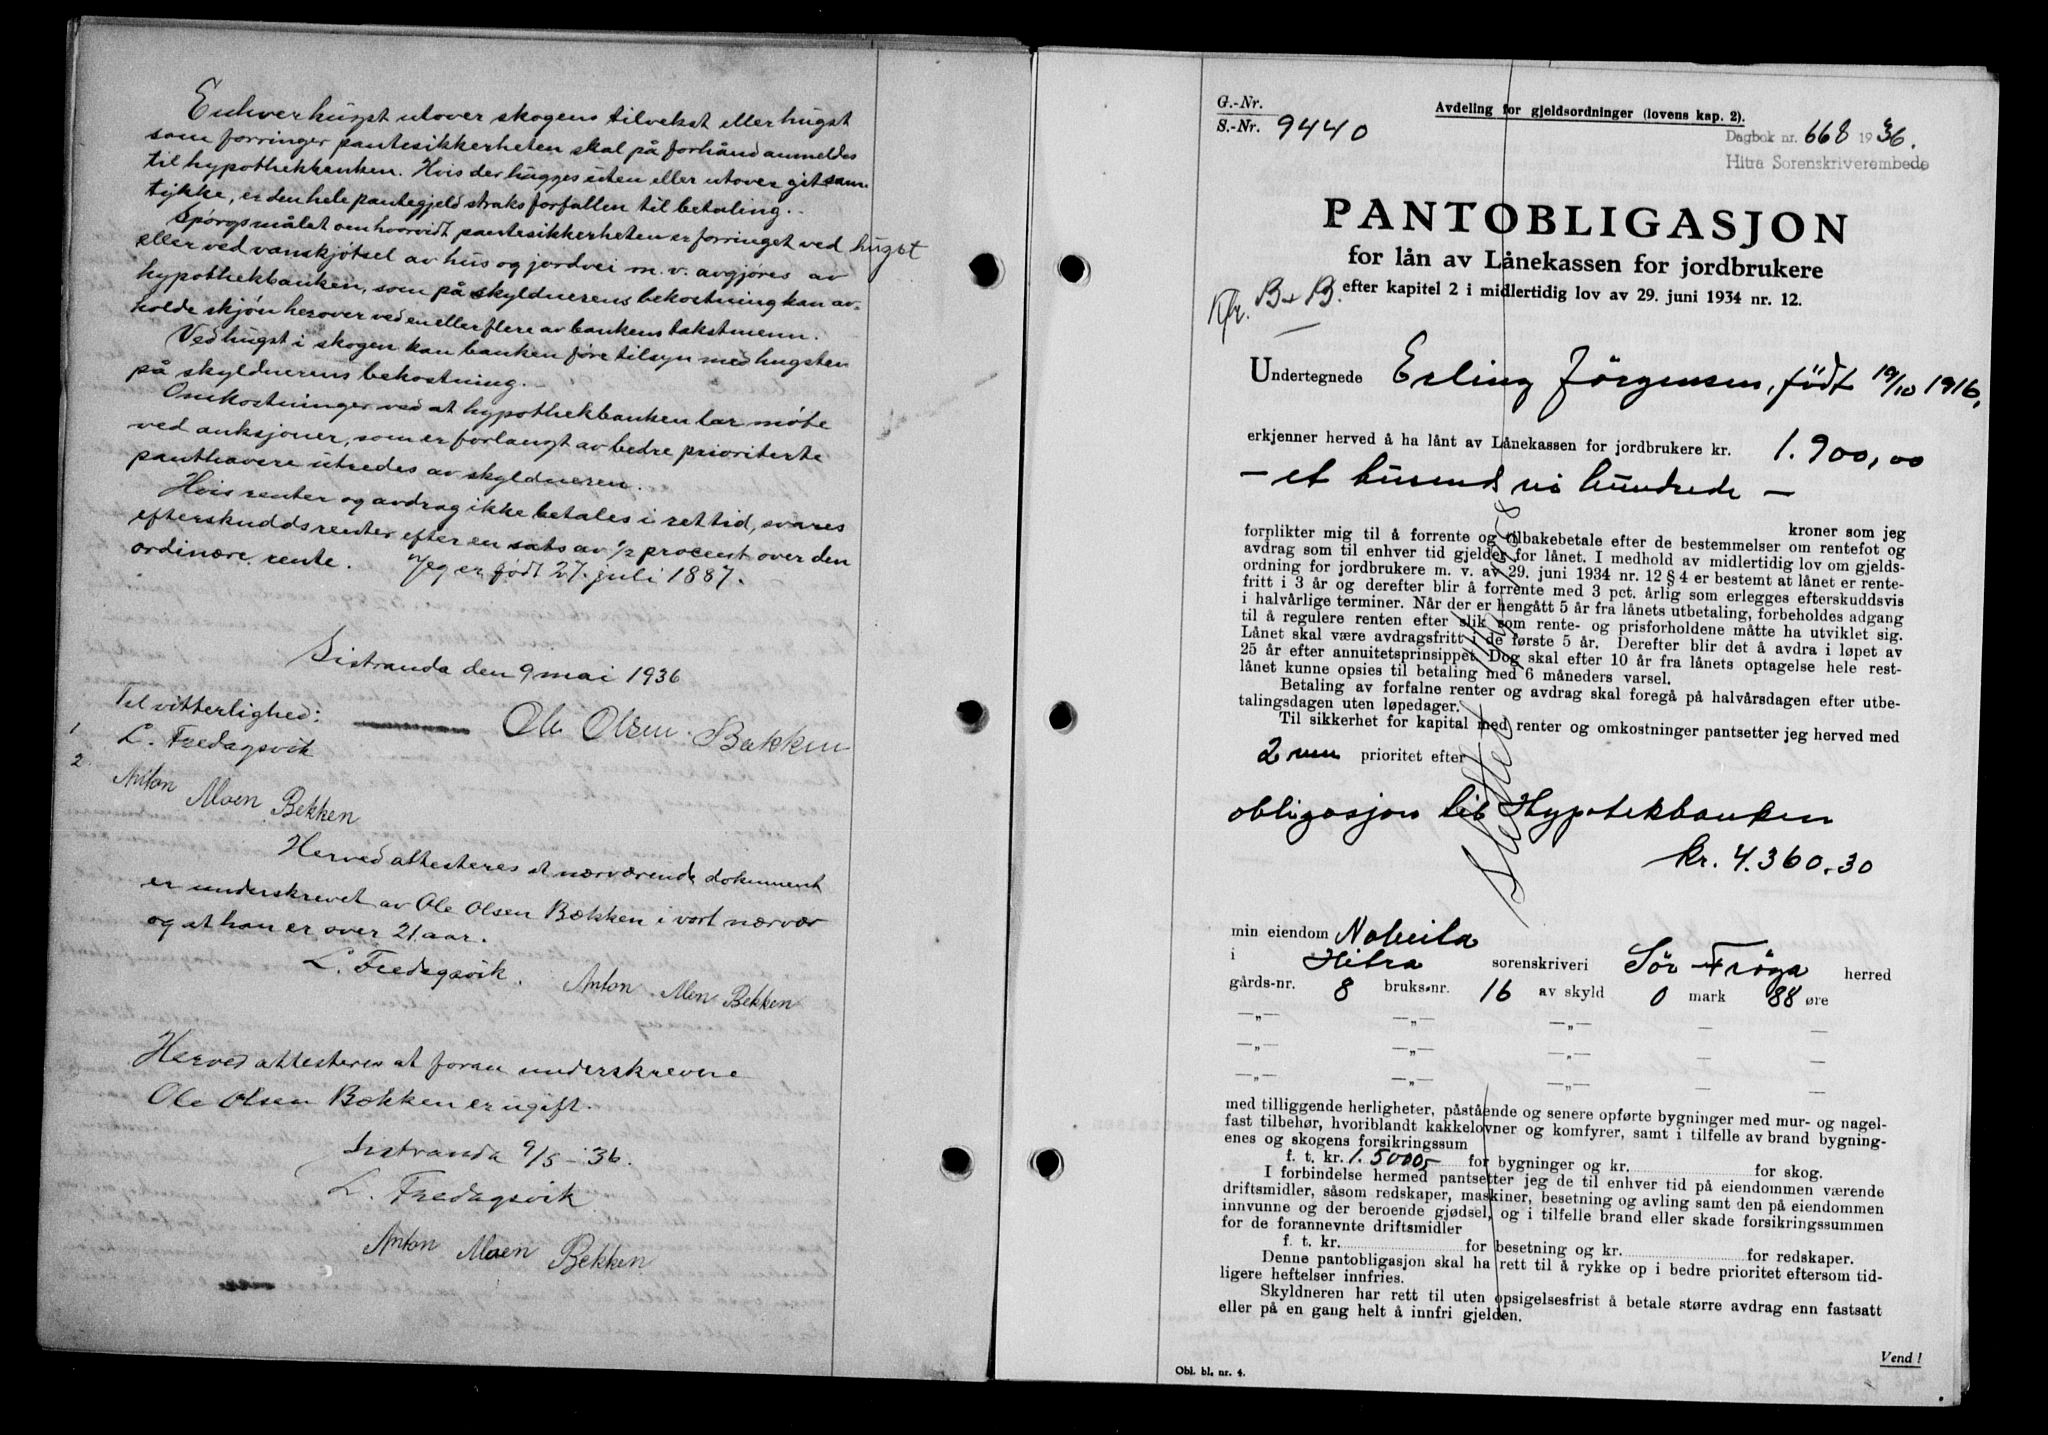 Enhver hugst utover skogens tilvekst eller hugst
som forringer pantesikkerheten skal på forhånd anmeldes
til hypothekbanken. Hvis der hugges uten eller utover git sam-
tykke, er den hele pantegjeld straks forfallen til betaling.-
Spørgsmålet om hvorvidt pantesikkerheten er forringet ved hugst
eller ved vanskjøtsel av hus og jordvei m.v. avgjøres av
hypothekbanken, som på skyldnerens bekostning kan av-
holde skjøn herover ved en eller flere av bankens takstmenn.
Ved hugst i skogen kan banken føre tilsyn med hugsten
på skyldnerens bekostning.-
Omkostninger ved at hypothekbanken lar møte
ved auksjoner, som er forlangt av bedre prioriterte
panthavere utredes av skyldneren.
Hvis renter og avdrag ikke betales i ret tid, svares
efterskuddsrenter efter en sats av 1/2 procent over den
ordinære rente. Jeg er født 27. juli 1887.
Sistranda den 9 mai 1936
Til vitterlighed:
Ole Olsen Bækken
1 L. Fredagsvik
2 Anton Moen Bekken
Herved attesteres at nærværende dokument
er underskrevet av Ole Olsen Bækken i vort nærvær
og at han er over 21 aar.
L. Fredagsvik. Anton Moen Bekken
Herved attesteres at foran underskrevne
Ole Olsen Bækken er ugift.
Sistranda 9/5-36.
L. Fredagsvik
Anton Moen Bekken
G.-Nr.
S.-Nr. 9440
Avdeling for gjeldsordninger (lovens kap. 2).
Dagbok nr. 668 1936.
Hitra Sorenskriverembede
PANTOBLIGASJON
for lån av Lånekassen for jordbrukere
efter kapitel 2 i midlertidig lov av 29. juni 1934 nr. 12.
Kfr. B + B.
Undertegnede Erling Jörgensen, født 19/10 1916,
erkjenner herved å ha lånt av Lånekassen for jordbrukere kr. 1.900,00
- et tusend ni hundrede -
kroner som jeg
forplikter mig til å forrente og tilbakebetale efter de bestemmelser om rentefot og
avdrag som til enhver tid gjelder for lånet. I medhold av midlertidig lov om gjelds-
ordning for jordbrukere m. v. av 29. juni 1934 nr. 12 § 4 er bestemt at lånet er rente-
fritt i 3 år og derefter blir å forrente med 3 pct. årlig som erlegges efterskuddsvis
i halvårlige terminer. Når der er hengått 5 år fra lånets utbetaling, forbeholdes adgang
til å regulere renten efter slik som rente- og prisforholdene måtte ha utviklet sig.
Lånet skal være avdragsfritt i de første 5 år. Derefter blir det å avdra i løpet av
25 år efter annuitetsprinsippet. Dog skal efter 10 år fra lånets optagelse hele rest-
lånet kunne opsies til betaling med 6 måneders varsel.
Betaling av forfalne renter og avdrag skal foregå på halvårsdagen efter utbe-
talingsdagen uten løpedager.
Til sikkerhet for kapital med renter og omkostninger pantsetter jeg herved med
2 nen prioritet efter
obligasjon til Hypotekbanken
kr. 4.360,30
Slettet
min eiendom Nabeita
i Hitra sorenskriveri Sör Fröya herred
gårds-nr. 8 bruks-nr. 16 av skyld 0 mark 88 øre
—„— —„— —„— — —
—„— —„— —„— — —
—„— —„— —„— — —
med tilliggende herligheter, påstående og senere opførte bygninger med mur- og nagel-
fast tilbehør, hvoriblandt kakkelovner og komfyrer, samt i tilfelle av brand bygning-
enes og skogens forsikringssum
f. t. kr. 1.5000, for bygninger og kr. for skog.
I forbindelse hermed pantsetter jeg de til enhver tid på eiendommen værende
driftsmidler, såsom redskaper, maskiner, besetning og avling samt den på eiendommen
innvunne og der beroende gjødsel, og i tilfelle brand eller skade forsikringssummen
for de forannevnte driftsmidler
f. t. kr. for besetning og kr. for redskaper.
Denne pantobligasjon skal ha rett til å rykke op i bedre prioritet eftersom tid-
ligere heftelser innfries.
Skyldneren har rett til uten opsigelsesfrist å betale større avdrag enn fastsatt
eller på en gang helt å innfri gjelden.
Vend !
Obl. bl. nr. 4.